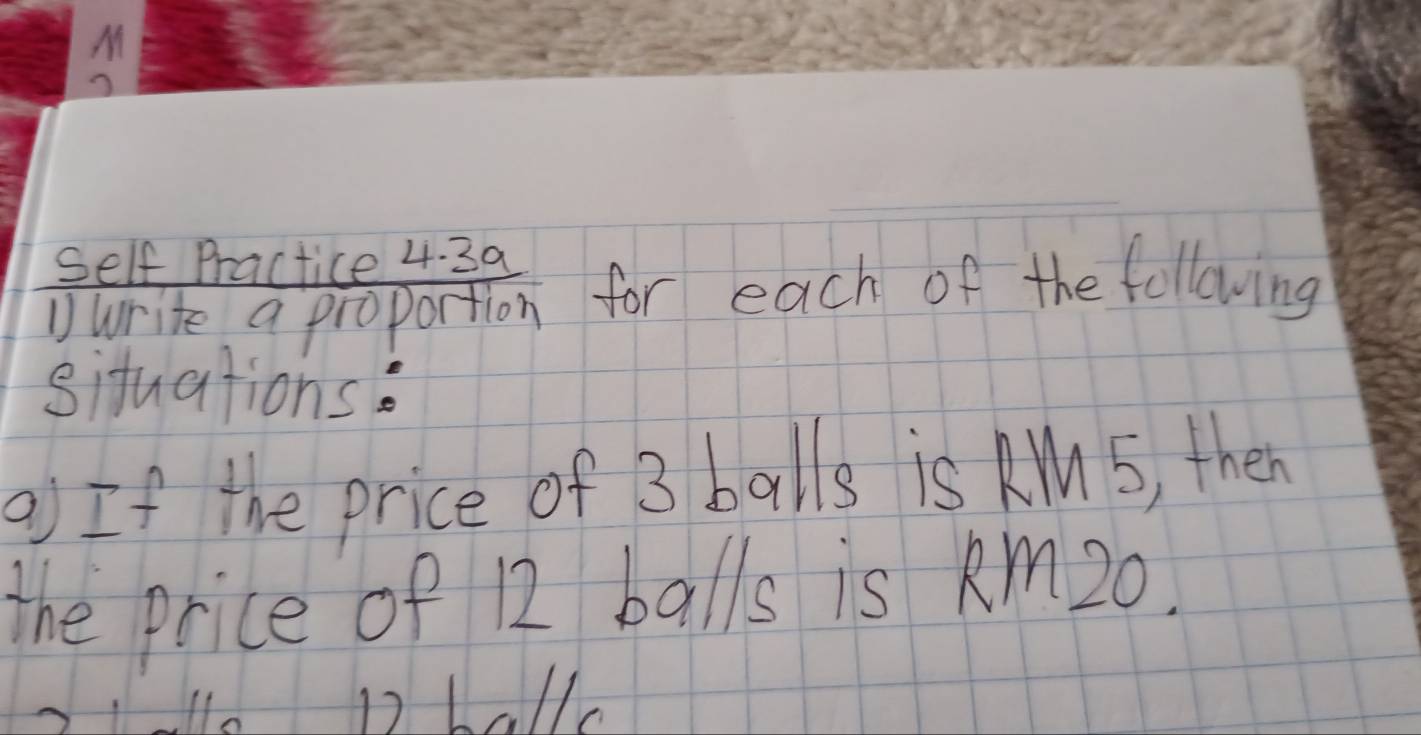 M
Self Practice 4.3a
1) Write a proportion for each of the following
situations:
a) If the price of 3 balls is RM5, then
the price of 12 balls is RM20.
12 balls